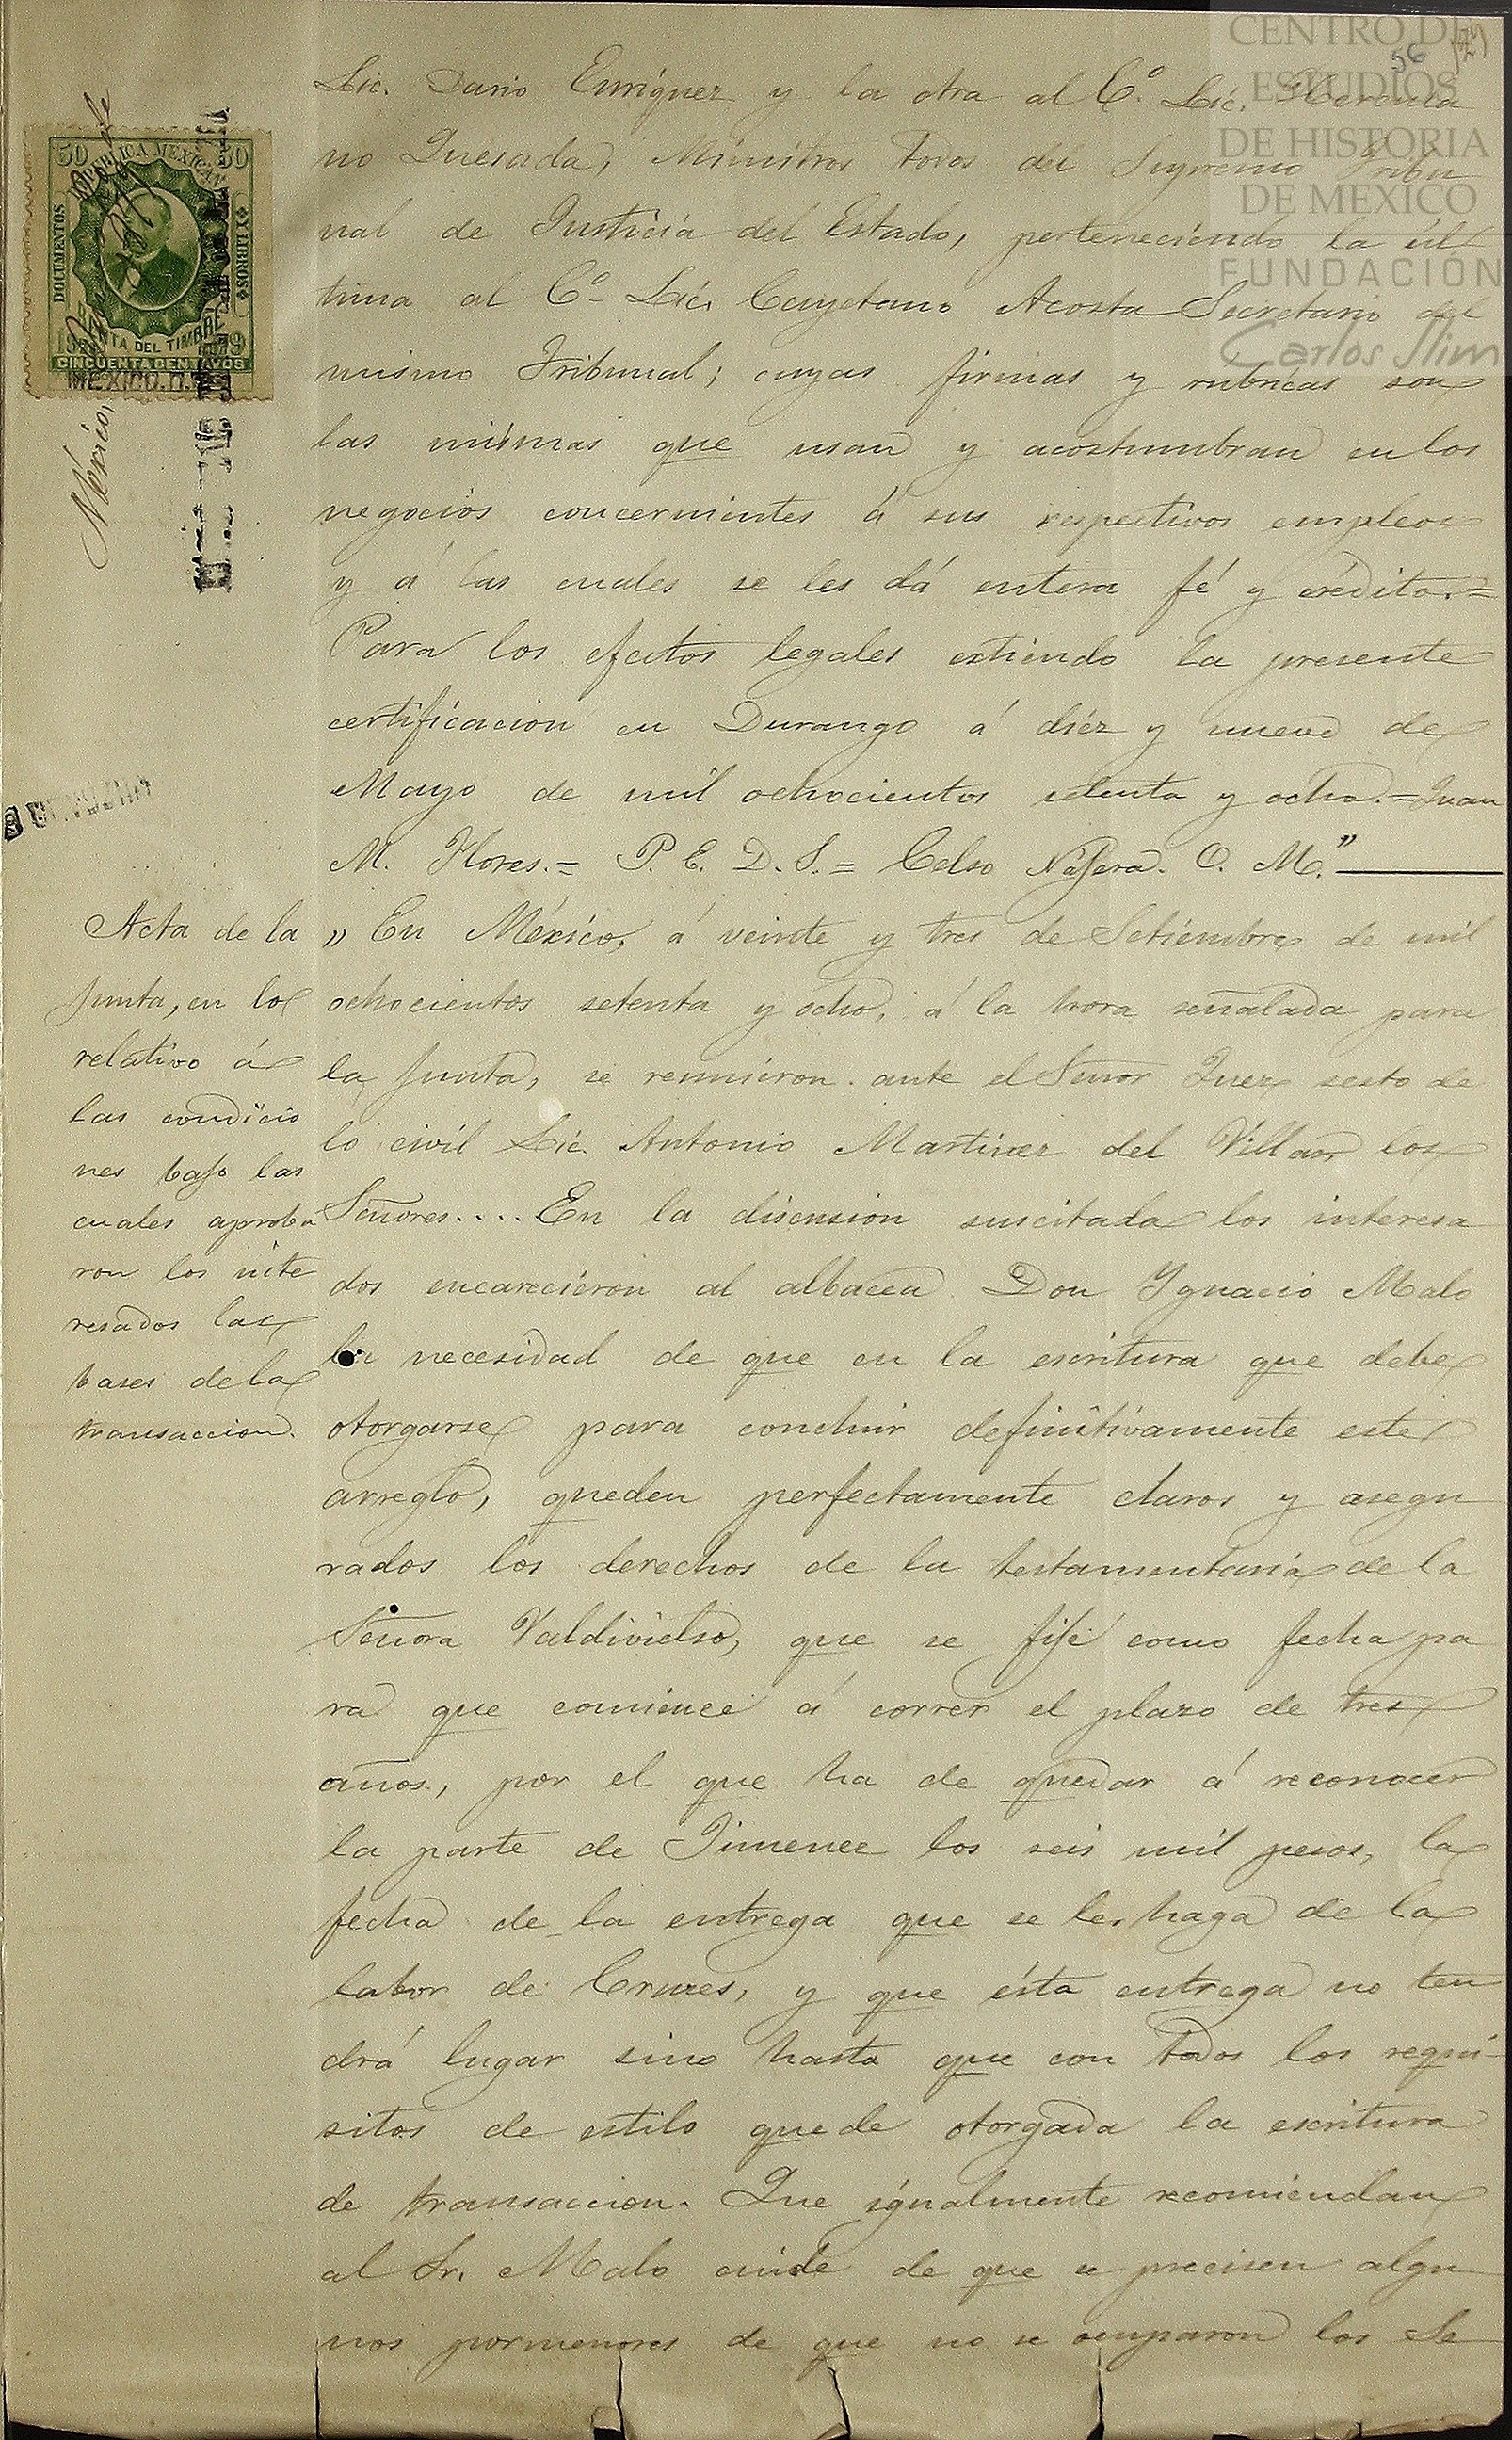 CENTRO DE
ESTUDIOS
DE HISTORIA
DE MEXICO
FUNDACIÓN
Carlos Slim
56
50 REPÚBLICA MEXICANA 50
DOCUMENTOS
Y LIBROS
RENTA DEL TIMBRE
CINCUENTA CENTAVOS
MEXICO. D.
México,
Lic. Dario Enriquez y la otra al C.º Lic. Herenia
no Quesada, Ministros todos del Supremo Tribu
nal de Justicia del Estado, perteneciendo la úl
tima al C.º Lic. Cayetano Acosta Secretario del
mismo Tribunal; cuyas firmas y rubricas son
las mismas que usan y acostumbran en los
negocios concernientes á sus respectivos empleos
y á las cuales se les dá entera fé y crédito.=
Para los efectos legales extiendo la presente
certificacion en Durango á diez y nueve de
Mayo de mil ochocientos setenta y ocho.=Juan
M. Flores.= P. E. D. S.= Celso Nájera. O. M."
Acta de la
junta, en lo
relativo á
las condicio
nes bajo las
cuales aproba
ron los inte
resados las
bases de la
transaccion.
" En México, á veinte y tres de Setiembre de mil
ochocientos setenta y ocho, á la hora señalada para
la junta, se reunieron ante el Señor Juez sesto de
lo civil Lic. Antonio Martinez del Villar, los
Señores.... En la discusion suscitada los interesa
dos encarecieron al albacea Don Ygnacio Malo
la necesidad de que en la escritura que debe
otorgarse para concluir definitivamente este
arreglo, queden perfectamente claros y asegu
rados los derechos de la testamentaria de la
Señora Valdivielso, que se fije como fecha pa
ra que comience á correr el plazo de tres
años, por el que ha de quedar á reconocer
la parte de Jimenez los seis mil pesos, la
fecha de la entrega que se les haga de la
labor de Cruces, y que ésta entrega no ten
drá lugar sino hasta que con todos los requi-
sitos de estilo quede otorgada la escritura
de transaccion. Que igualmente recomiendan
al Sr. Malo cuide de que se precisen algu
nos pormenores de que no se ocuparon los Se